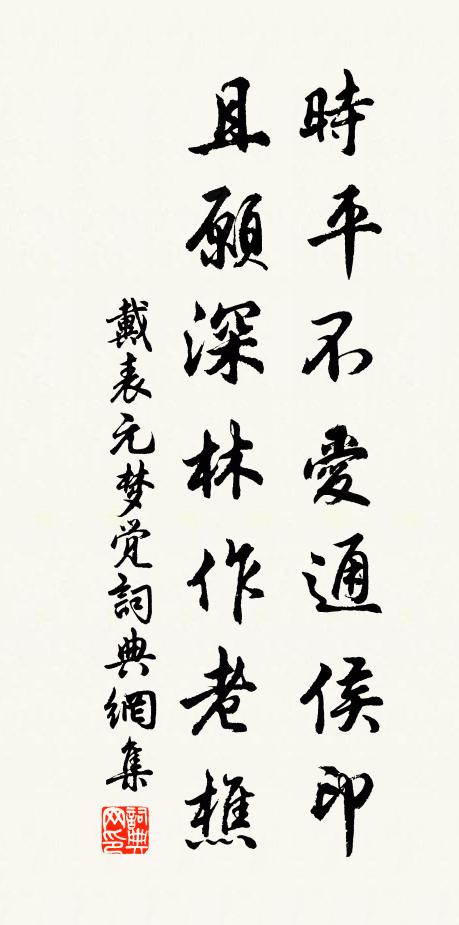 時平不愛通侯印
且願深林作老樵
戴表元梦觉詞典網集
詞典网印